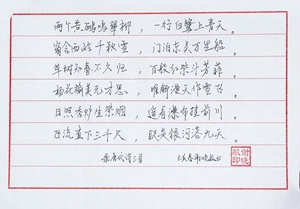 两个黄鹂鸣翠柳，一行白鹭上青天。
窗含西岭千秋雪，门泊东吴万里船。
草树知春不久归，百般红紫斗芳菲。
杨花榆荚无才思，唯解漫天作雪飞。
日照香炉生紫烟，遥看瀑布挂前川。
飞流直下三千尺，疑是银河落九天。
录唐代诗三首